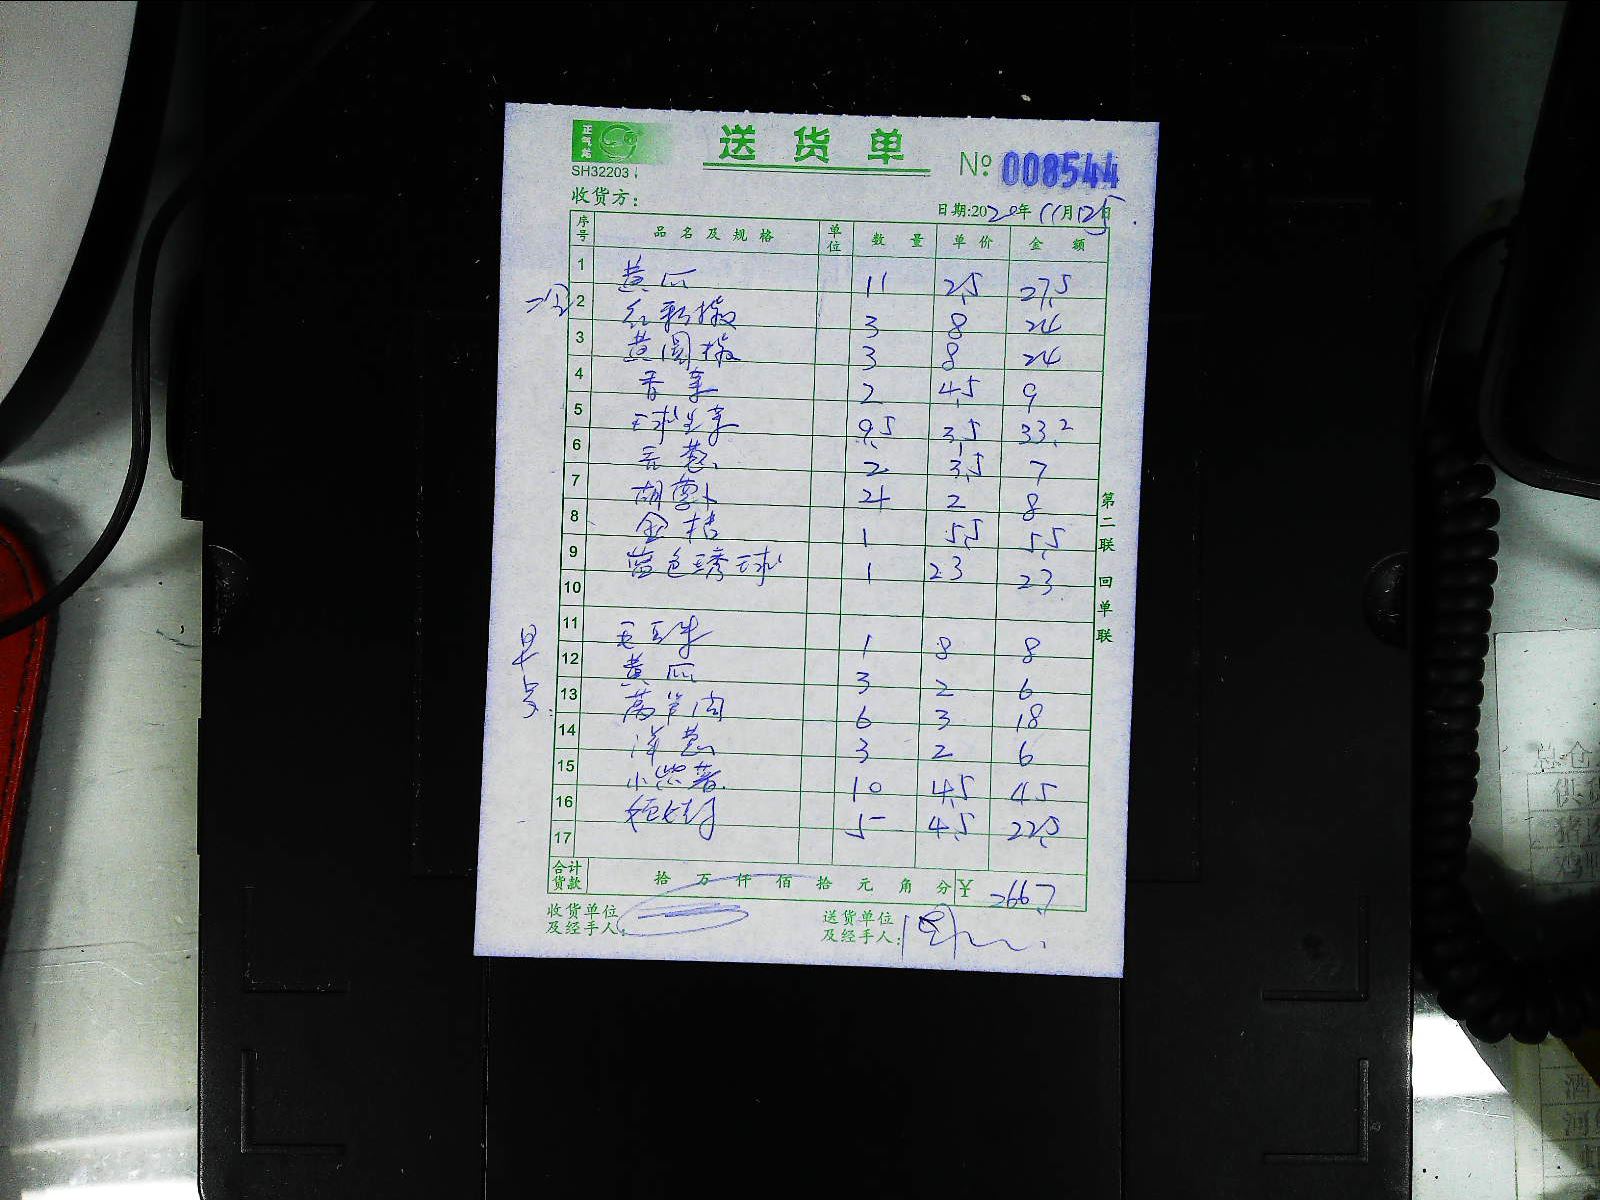 正气龙
送货单
SH32203
№ 008544
收货方：
日期:2020年11月25日
序号 品名及规格 单位 数量 单价 金额
1 黄瓜 11 2.5 27.5
2 红彩椒 3 8 24
3 黄圆椒 3 8 24
4 香菜 2 4.5 9
5 球生菜 9.5 3.5 33.2
6 京葱 2 3.5 7
7 胡萝卜 4 2 8
8 金桔 1 5.5 5.5
9 蓝色绣球 1 23 23
10
11 毛豆 1 8 8
12 黄瓜 3 2 6
早点
13 莴笋 6 3 18
14 洋葱 3 2 6
15 小紫薯 10 4.5 45
16 5 4.5 22.5
17
合计货款 拾 万 仟 佰 拾 元 角 分 ¥ 266.7
收货单位及经手人：
送货单位及经手人：
第二联 回单联